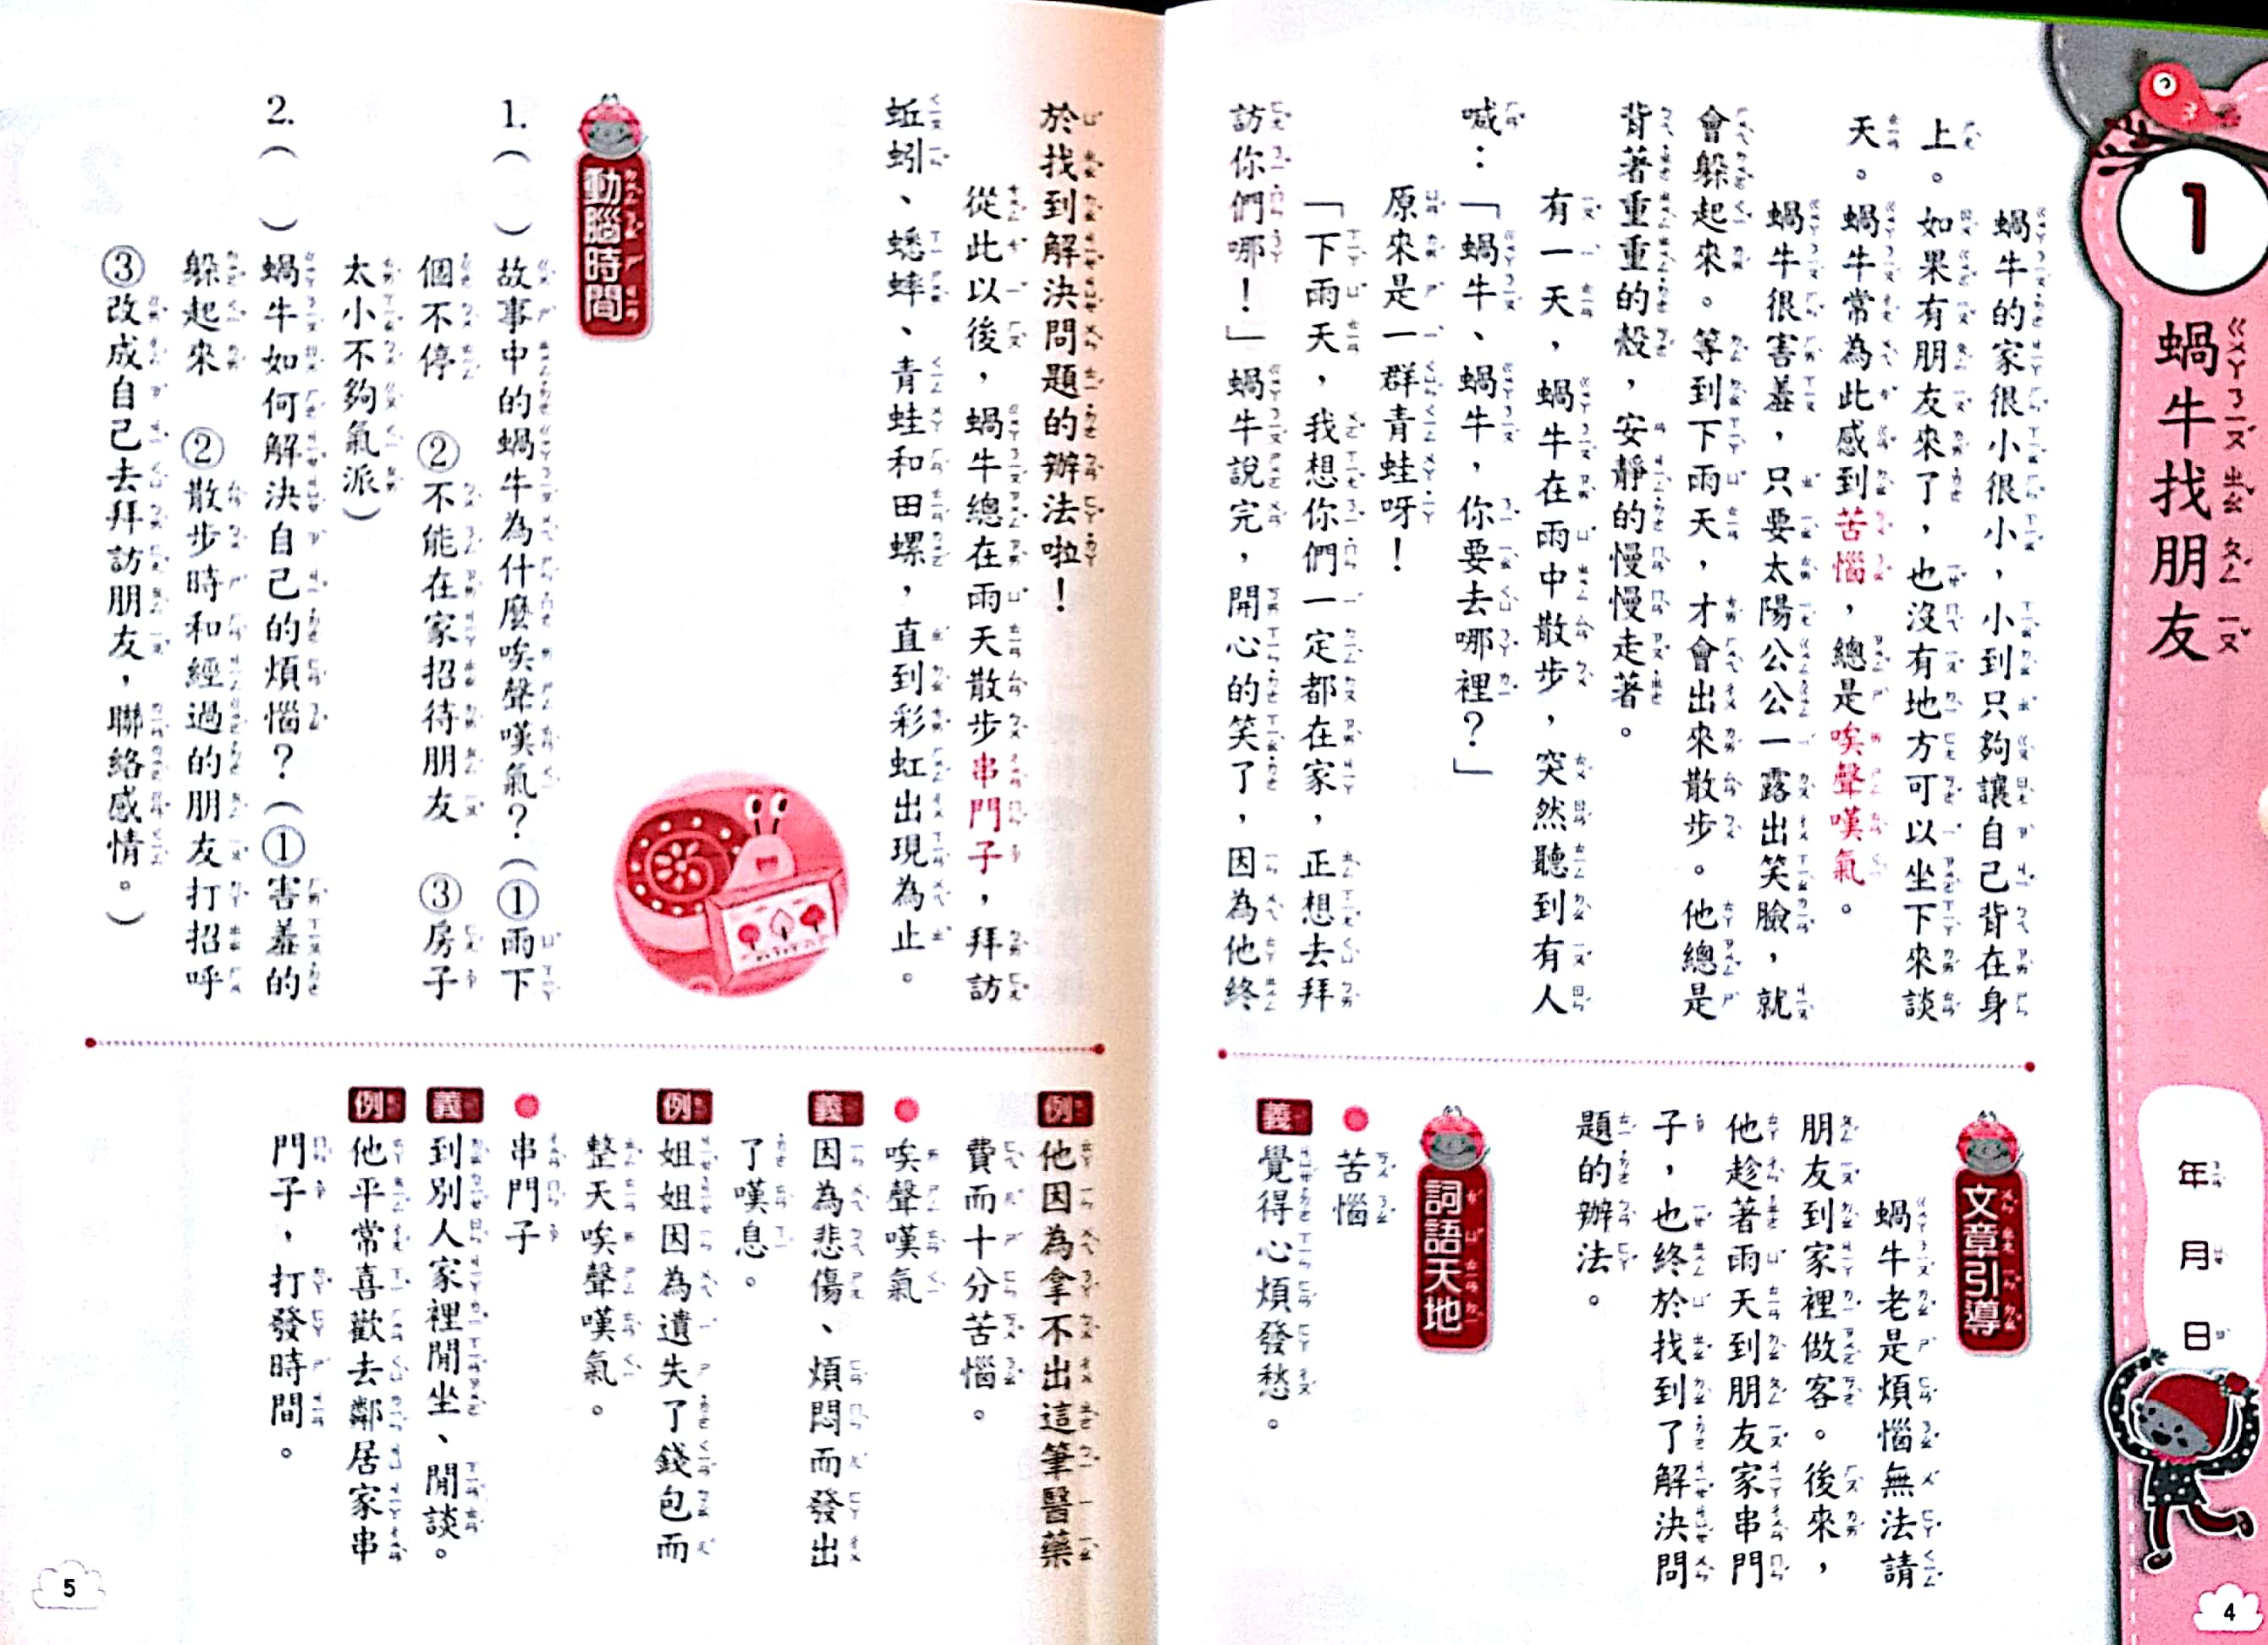 1
蝸牛找朋友
蝸牛的家很小很小，小到只夠讓自己背在身
上。如果有朋友來了，也沒有地方可以坐下來談
天。蝸牛常為此感到苦惱，總是唉聲嘆氣。
蝸牛很害羞，只要太陽公公一露出笑臉，就
會躲起來。等到下雨天，才會出來散步。他總是
背著重重的殼，安靜的慢慢走著。
有一天，蝸牛在雨中散步，突然聽到有人
喊：「蝸牛、蝸牛，你要去哪裡？」
原來是一群青蛙呀！
「下雨天，我想你們一定都在家，正想去拜
訪你們哪！」蝸牛說完，開心的笑了，因為他終
於找到解決問題的辦法啦！
從此以後，蝸牛總在雨天散步串門子，拜訪
蚯蚓、蟋蟀、青蛙和田螺，直到彩虹出現為止。
動腦時間
1.（　）故事中的蝸牛為什麼唉聲嘆氣？（①雨下
個不停　②不能在家招待朋友　③房子
太小不夠氣派）
2.（　）蝸牛如何解決自己的煩惱？（①害羞的
躲起來　②散步時和經過的朋友打招呼
③改成自己去拜訪朋友，聯絡感情。）
年 月 日
文章引導
蝸牛老是煩惱無法請
朋友到家裡做客。後來，
他趁著雨天到朋友家串門
子，也終於找到了解決問
題的辦法。
詞語天地
苦惱
義 覺得心煩發愁。
例 他因為拿不出這筆醫藥
費而十分苦惱。
唉聲嘆氣
義 因為悲傷、煩悶而發出
了嘆息。
例 姐姐因為遺失了錢包而
整天唉聲嘆氣。
串門子
義 到別人家裡閒坐、閒談。
例 他平常喜歡去鄰居家串
門子，打發時間。
4
5